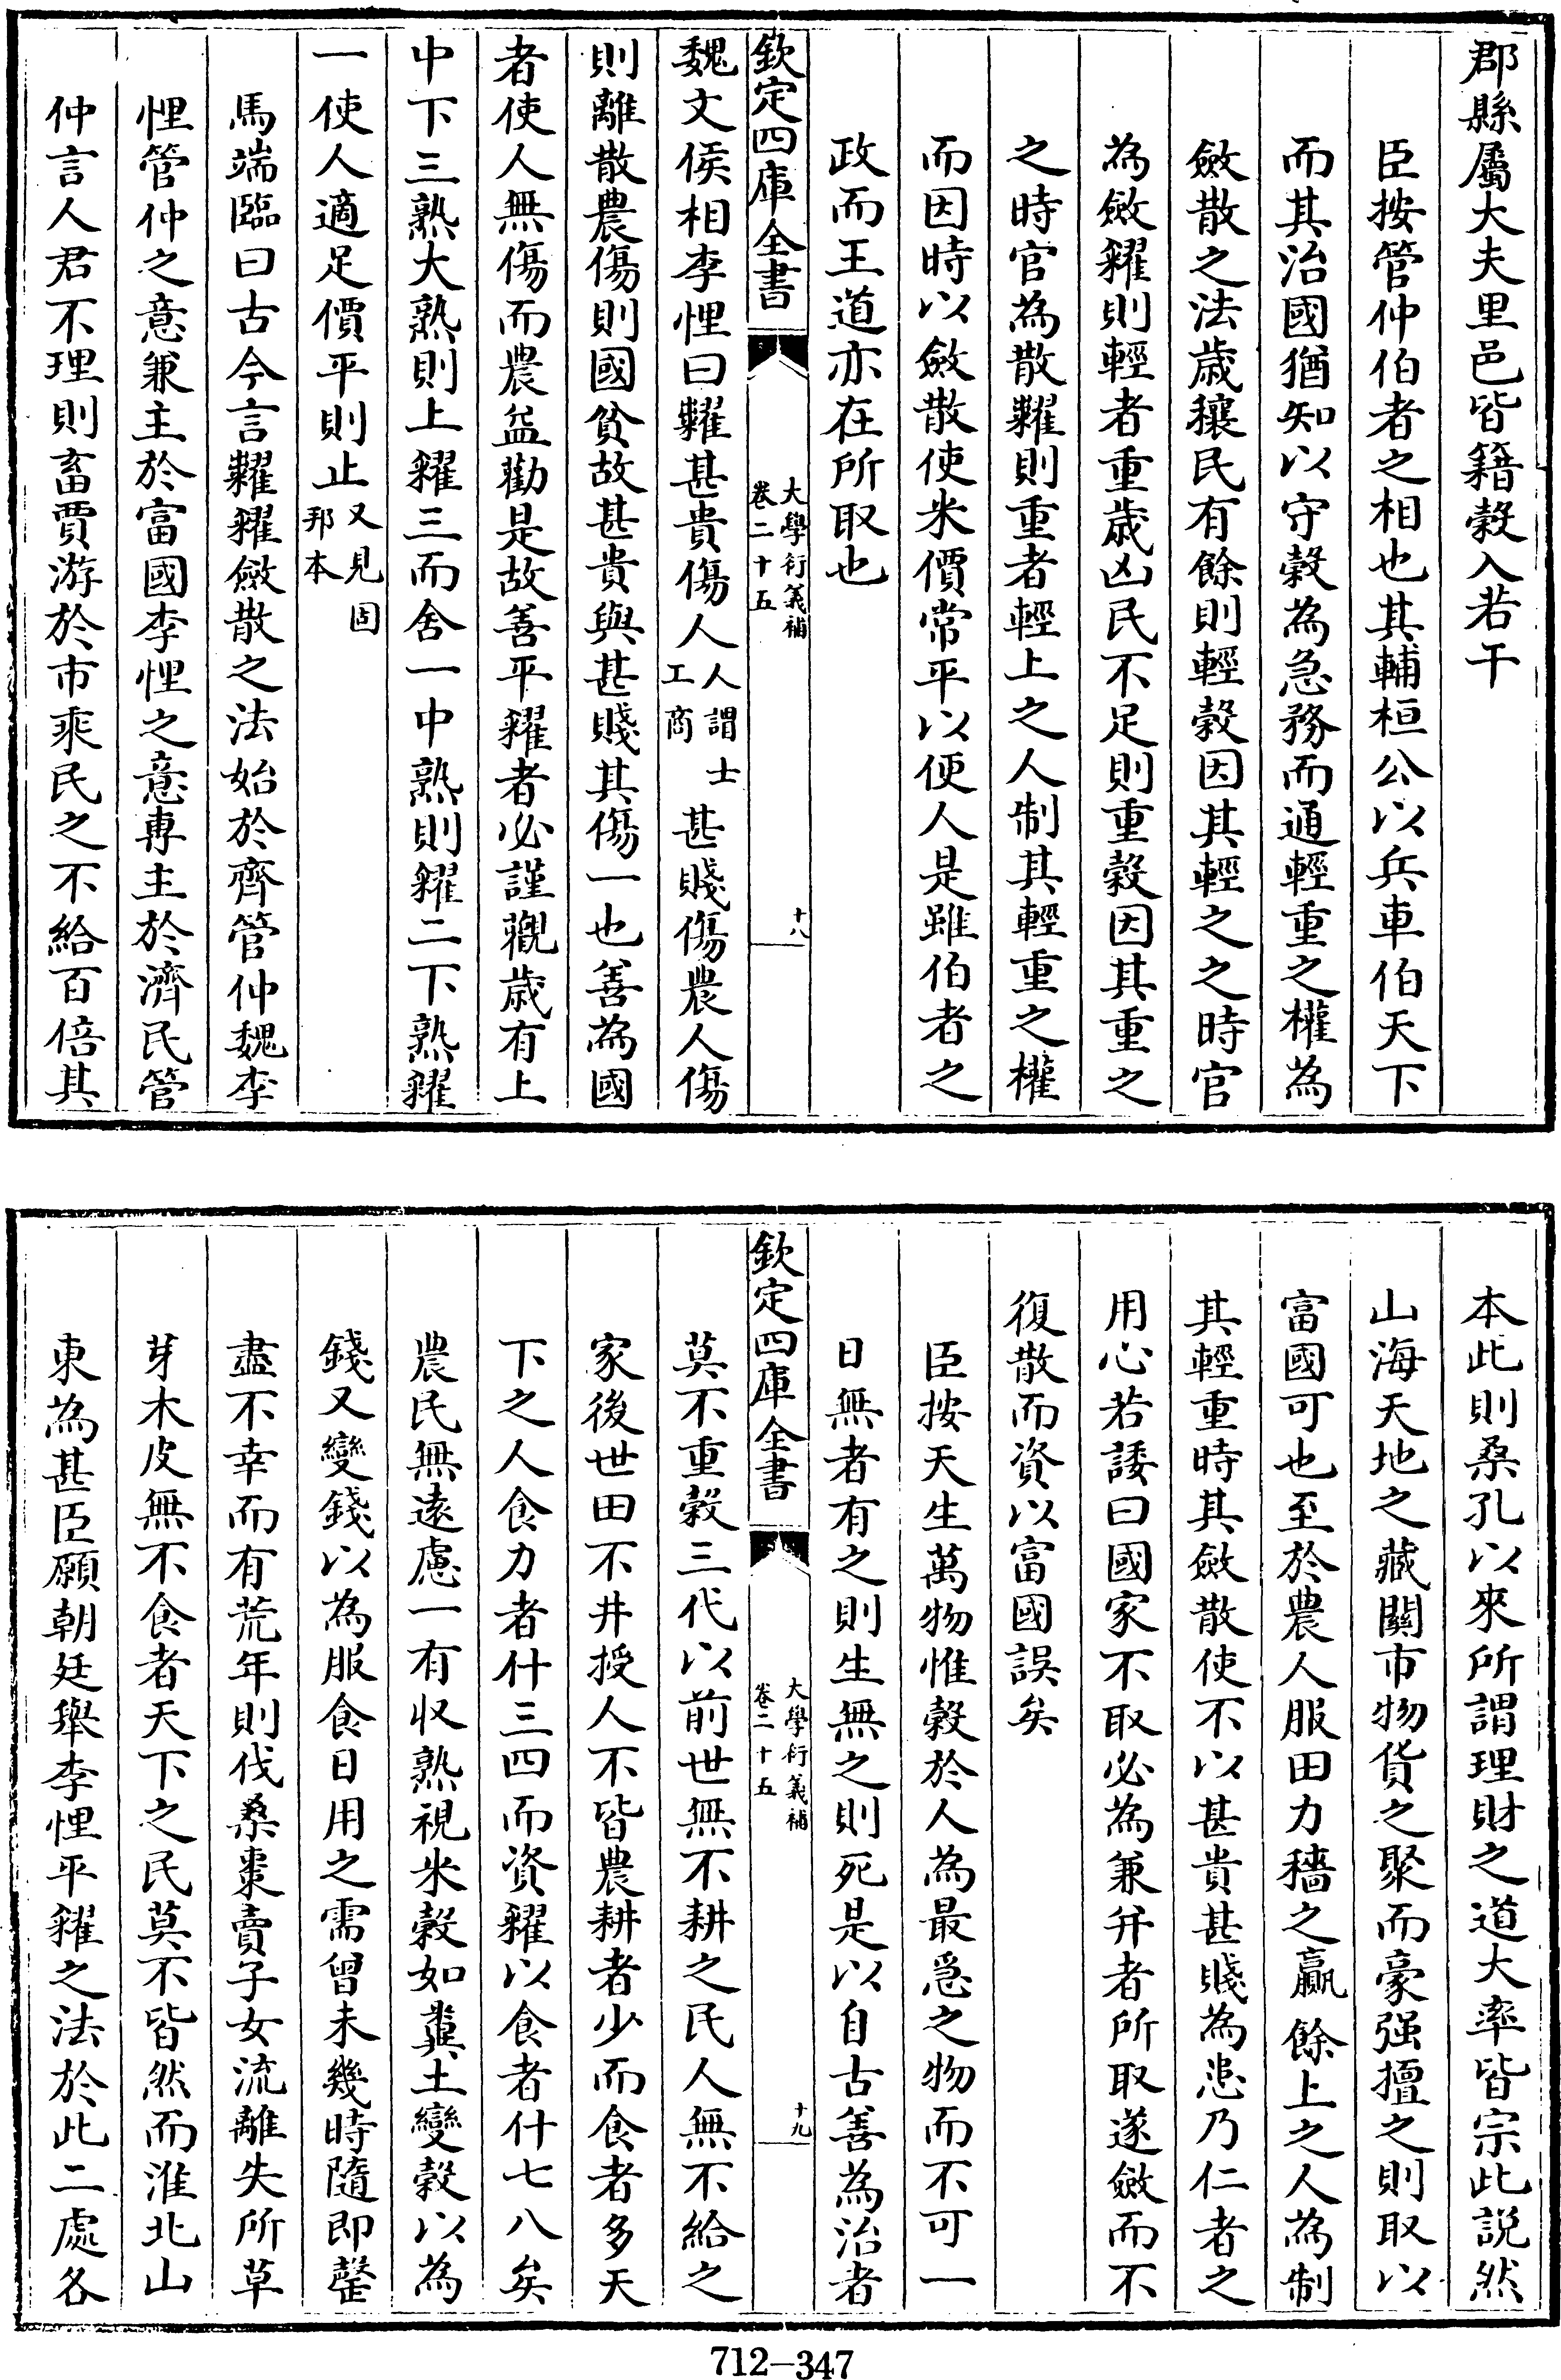 郡縣屬大夫里邑皆籍榖入若干
臣按管仲伯者之相也其輔桓公以兵車伯天下
而其治國猶知以守榖為急務而通輕重之權為
斂散之法歲穰民有餘則輕榖因其輕之之時官
為斂糴則輕者重歲凶民不足則重榖因其重之
之時官為散糶則重者輕上之人制其輕重之權
而因時以斂散使米價常平以便人是雖伯者之
政而王道亦在所取也
欽定四庫全書
大學衍義補
卷二十五
十八
魏文侯相李悝曰糶甚貴傷人人謂士工商甚賤傷農人傷
則離散農傷則國貧故甚貴與甚賤其傷一也善為國
者使人無傷而農益勸是故善平糴者必謹觀歲有上
中下三熟大熟則上糴三而舍一中熟則糴二下熟糴
一使人適足價平則止又見固邦本
馬端臨曰古今言糶糴斂散之法始於齊管仲魏李
悝管仲之意兼主於富國李悝之意專主於濟民管
仲言人君不理則畜賈游於市乘民之不給百倍其
本此則桑孔以來所謂理財之道大率皆宗此說然
山海天地之藏關市物貨之聚而豪强擅之則取以
富國可也至於農人服田力穡之贏餘上之人為制
其輕重時其斂散使不以甚貴甚賤為患乃仁者之
用心若諉曰國家不取必為兼并者所取遂斂而不
復散而資以富國誤矣
臣按天生萬物惟榖於人為最急之物而不可一
日無者有之則生無之則死是以自古善為治者
欽定四庫全書
大學衍義補
卷二十五
十九
莫不重榖三代以前世無不耕之民人無不給之
家後世田不井授人不皆農耕者少而食者多天
下之人食力者什三四而資糴以食者什七八矣
農民無遠慮一有收熟視米榖如糞土變榖以為
錢又變錢以為服食日用之需曾未幾時隨即罄
盡不幸而有荒年則伐桑棗賣子女流離失所草
芽木皮無不食者天下之民莫不皆然而淮北山
東為甚臣願朝廷舉李悝平糴之法於此二處各
712-347